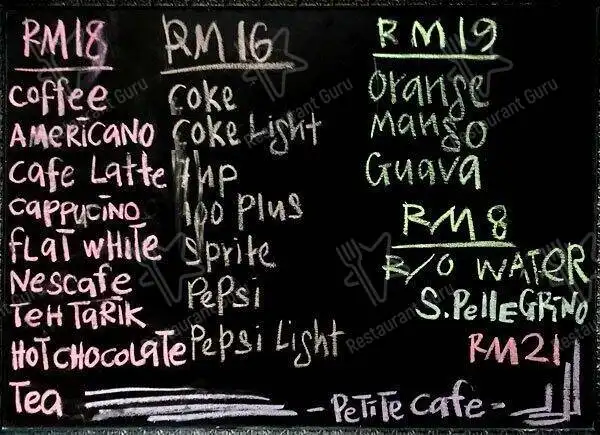 RM18
Coffee
AMERICANO
Cafe Latte
CAPPUCINO
FLAT WHITE
NESCAFE
TEH TARIK
HOT CHOCOLATE
Tea
RM16
Coke
Coke Light
7up
100 Plus
Sprite
Pepsi
Pepsi Light
RM19
Orange
Mango
Guava
RM8
R/O WATER
S.PELLEGRINO
RM21
- PETITE Cafe -
Restaurant Guru